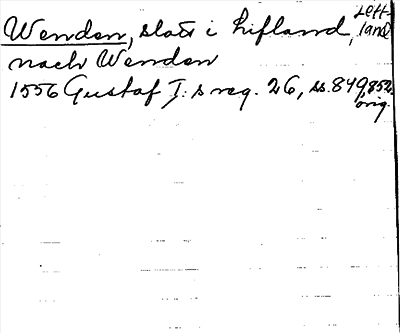 Wenden, slott i Lifland, Lett-
land
nach Wenden
1556 Gustaf I:s reg. 26, ss. 849, 852.
orig.